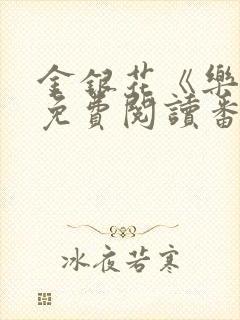 金銀花《樂
免費閱讀番
冰夜若寒